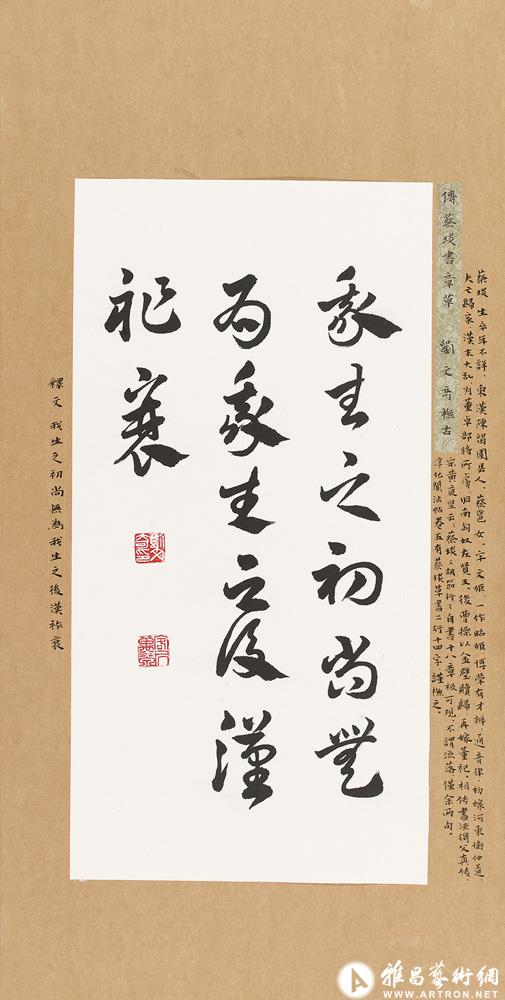 傳蔡琰書章草　劉文奇橅古
蔡琰生卒年不詳，東漢陳留圉縣人，蔡邕女，字文姬，一作昭姬，博學有才辨，通音律，初嫁河東衛仲道，
夫亡歸家，漢末大乱，为董卓部將所虜，归南匈奴左賢王，後曹操以金璧贖歸，再嫁董祀。相传書法得父真传，
宋黃庭堅云：蔡琰胡笳引自書十八章極可观，不謂流落僅余两句。
淳化閣法帖卷五有蔡琰草書二行十四字，謹橅之。
我生之初尚無
为我生之後漢
祚衰
釋文　我生之初尚無為我生之後漢祚衰
雅昌藝術網
WWW.ARTRON.NET